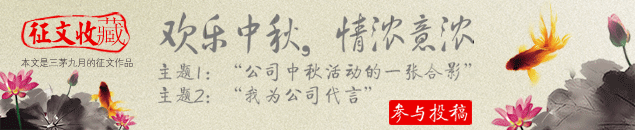 征文收藏
本文是三茅九月的征文作品
欢乐中秋，情浓意浓
主题1：“公司中秋活动的一张合影”
主题2：“我为公司代言”
参与投稿